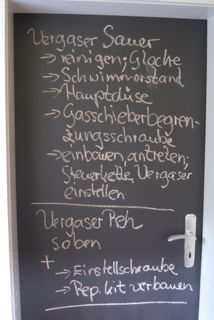 Vergaser Sauer
→ reinigen, Glocke
→ Schwimmerstand
→ Hauptdüse
→ Gasschieberbegren-
zungsschraube
→ einbauen, antreten,
Steuerkette, Vergaser
einstellen
Vergaser Reh
soben
+
→ Einstellschraube
→ Rep. kit verbauen